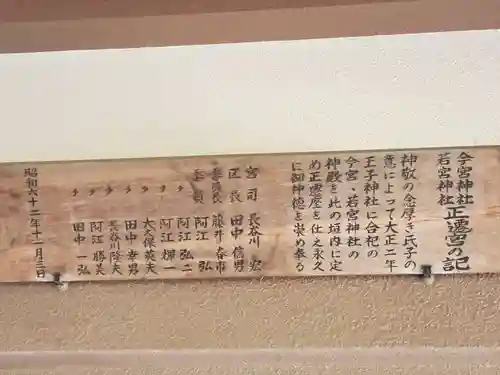 今宮神社
若宮神社
正遷宮の記
神敬の念厚き氏子の
意によって大正二年
王子神社に合祀の
今宮、若宮神社の
神殿を此の垣内に定
め正遷座を仕え永久
に御神徳を崇め奉る
宮司 長谷川 宏
区長 田中 信男
委員長 藤井 春市
委員 阿江 弘
〃 阿江 弘二
〃 阿江 柳一
〃 大久保 英夫
〃 田中 幸男
〃 長谷川 隆夫
〃 阿江 勝美
〃 田中 一弘
昭和六十二年十二月三日